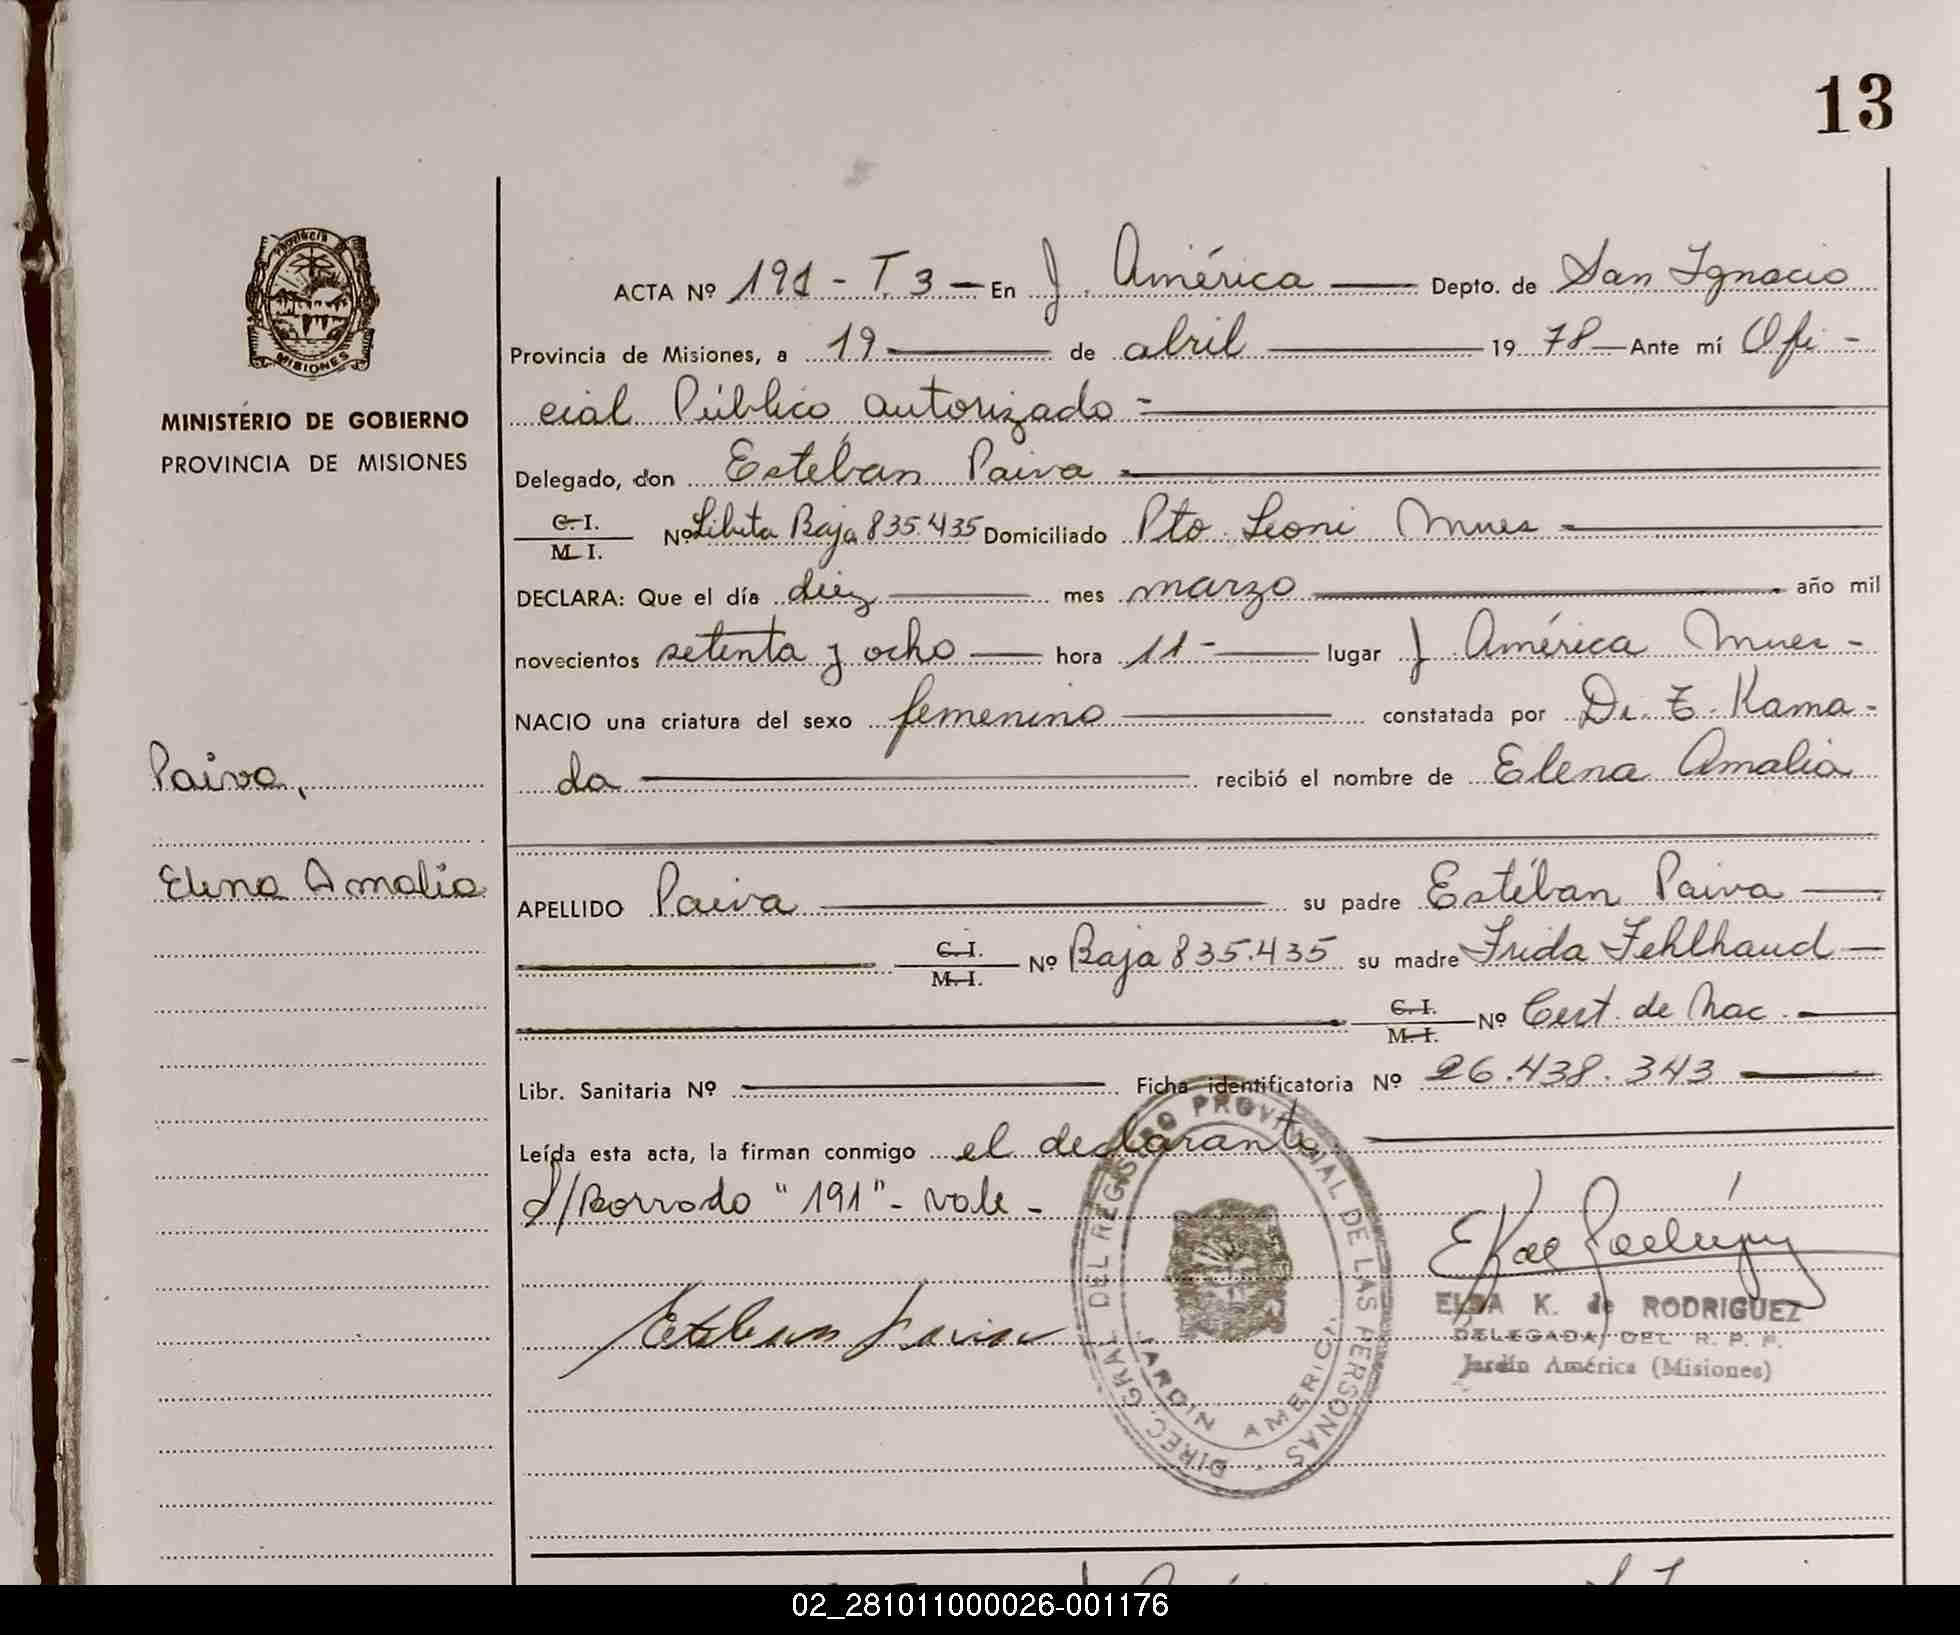 13
PROVINCIA DE
MISIONES
MINISTERIO DE GOBIERNO
PROVINCIA DE MISIONES
Paiva,
Elena Amalia
ACTA Nº 191 - T. 3 - En J. América Depto. de San Ignacio
Provincia de Misiones, a 19 de abril 1978 Ante mí Ofi-
cial Público autorizado -
Delegado, don Estéban Paiva
C. I.
M. I. Nº Libreta Baja 835.435 Domiciliado Pto. Leoni Mnes
DECLARA: Que el día diez mes marzo año mil
novecientos setenta y ocho hora 11- lugar J. América Mnes -
NACIO una criatura del sexo femenino constatada por Dr. E. Kama-
da recibió el nombre de Elena Amalia
APELLIDO Paiva su padre Estéban Paiva
C. I.
M. I. Nº Baja 835.435 su madre Frida Fehlhaud
C. I.
M. I. Nº Cert. de Nac.
Libr. Sanitaria Nº Ficha identificatoria Nº 26.438.343
Leída esta acta, la firman conmigo el declarante.
S/Borrado "191" - vale -
Esteban Paiva
DIREC. GRAL. DEL REGISTRO PROVINCIAL DE LAS PERSONAS
JARDIN AMERICA
ELBA K. de RODRIGUEZ
DELEGADA DEL R. P. P.
Jardín América (Misiones)
02_281011000026-001176